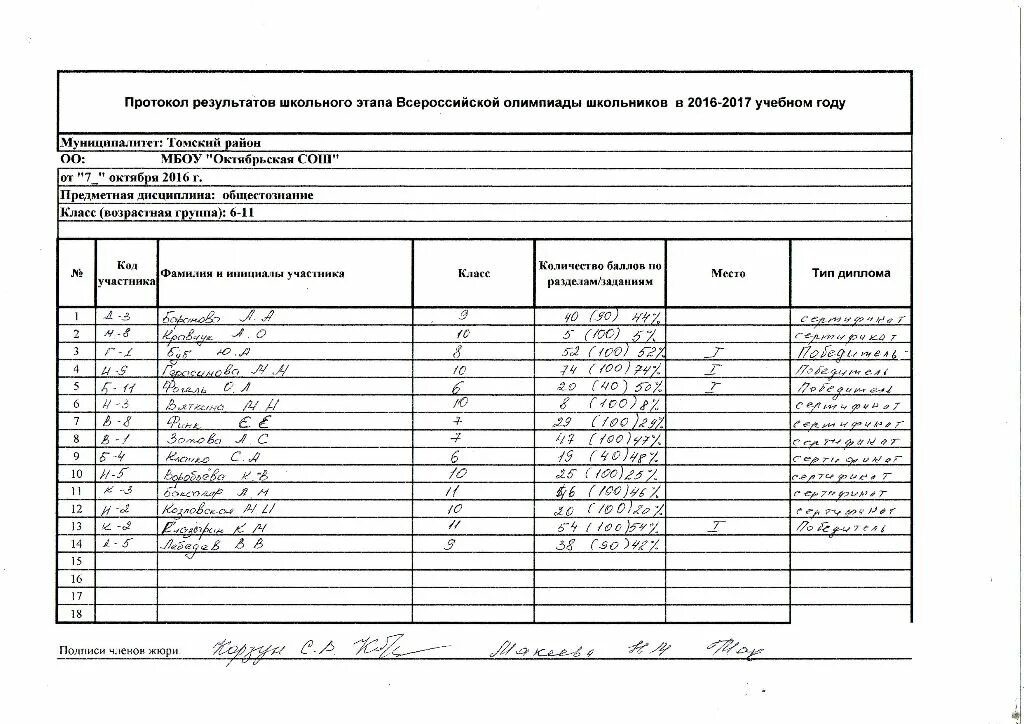 Протокол результатов школьного этапа Всероссийской олимпиады школьников в 2016-2017 учебном году
Муниципалитет: Томский район
ОО: МБОУ "Октябрьская СОШ"
от "7_" октября 2016 г.
Предметная дисциплина: общестознание
Класс (возрастная группа): 6-11
№ Код участника Фамилия и инициалы участника Класс Количество баллов по разделам/заданиям Место Тип диплома
1 Д-3 Л. А 9 40 (90) 44% сертификат
2 И-8 Кравчук Л. О 10 5 (100) 5% сертификат
3 Г-1 Буб Ю.А 8 52 (100) 52% I Победитель
4 И-9 Герасимова М 10 74 (100) 74% I Победитель
5 Б-11 О. Л 6 20 (40) 50% I Победитель
6 И-3 Вяткина М Н 10 8 (100) 8% сертификат
7 В-8 Финк Е Е 7 29 (100) 29% сертификат
8 В-1 Зотова Л С 7 47 (100) 47% сертификат
9 Б-4 С. А 6 19 (40) 48% сертификат
10 И-5 Воробьёва К. В 10 25 (100) 25% сертификат
11 К-3 11 46 (100) 46% сертификат
12 И-2 Козловская М И 10 20 (100) 20% сертификат
13 К-2 К М 11 54 (100) 54% I Победитель
14 Д-5 Лебедев В В 9 38 (90) 42%
15
16
17
18
Подписи членов жюри Корзун С. В Макеева Н М